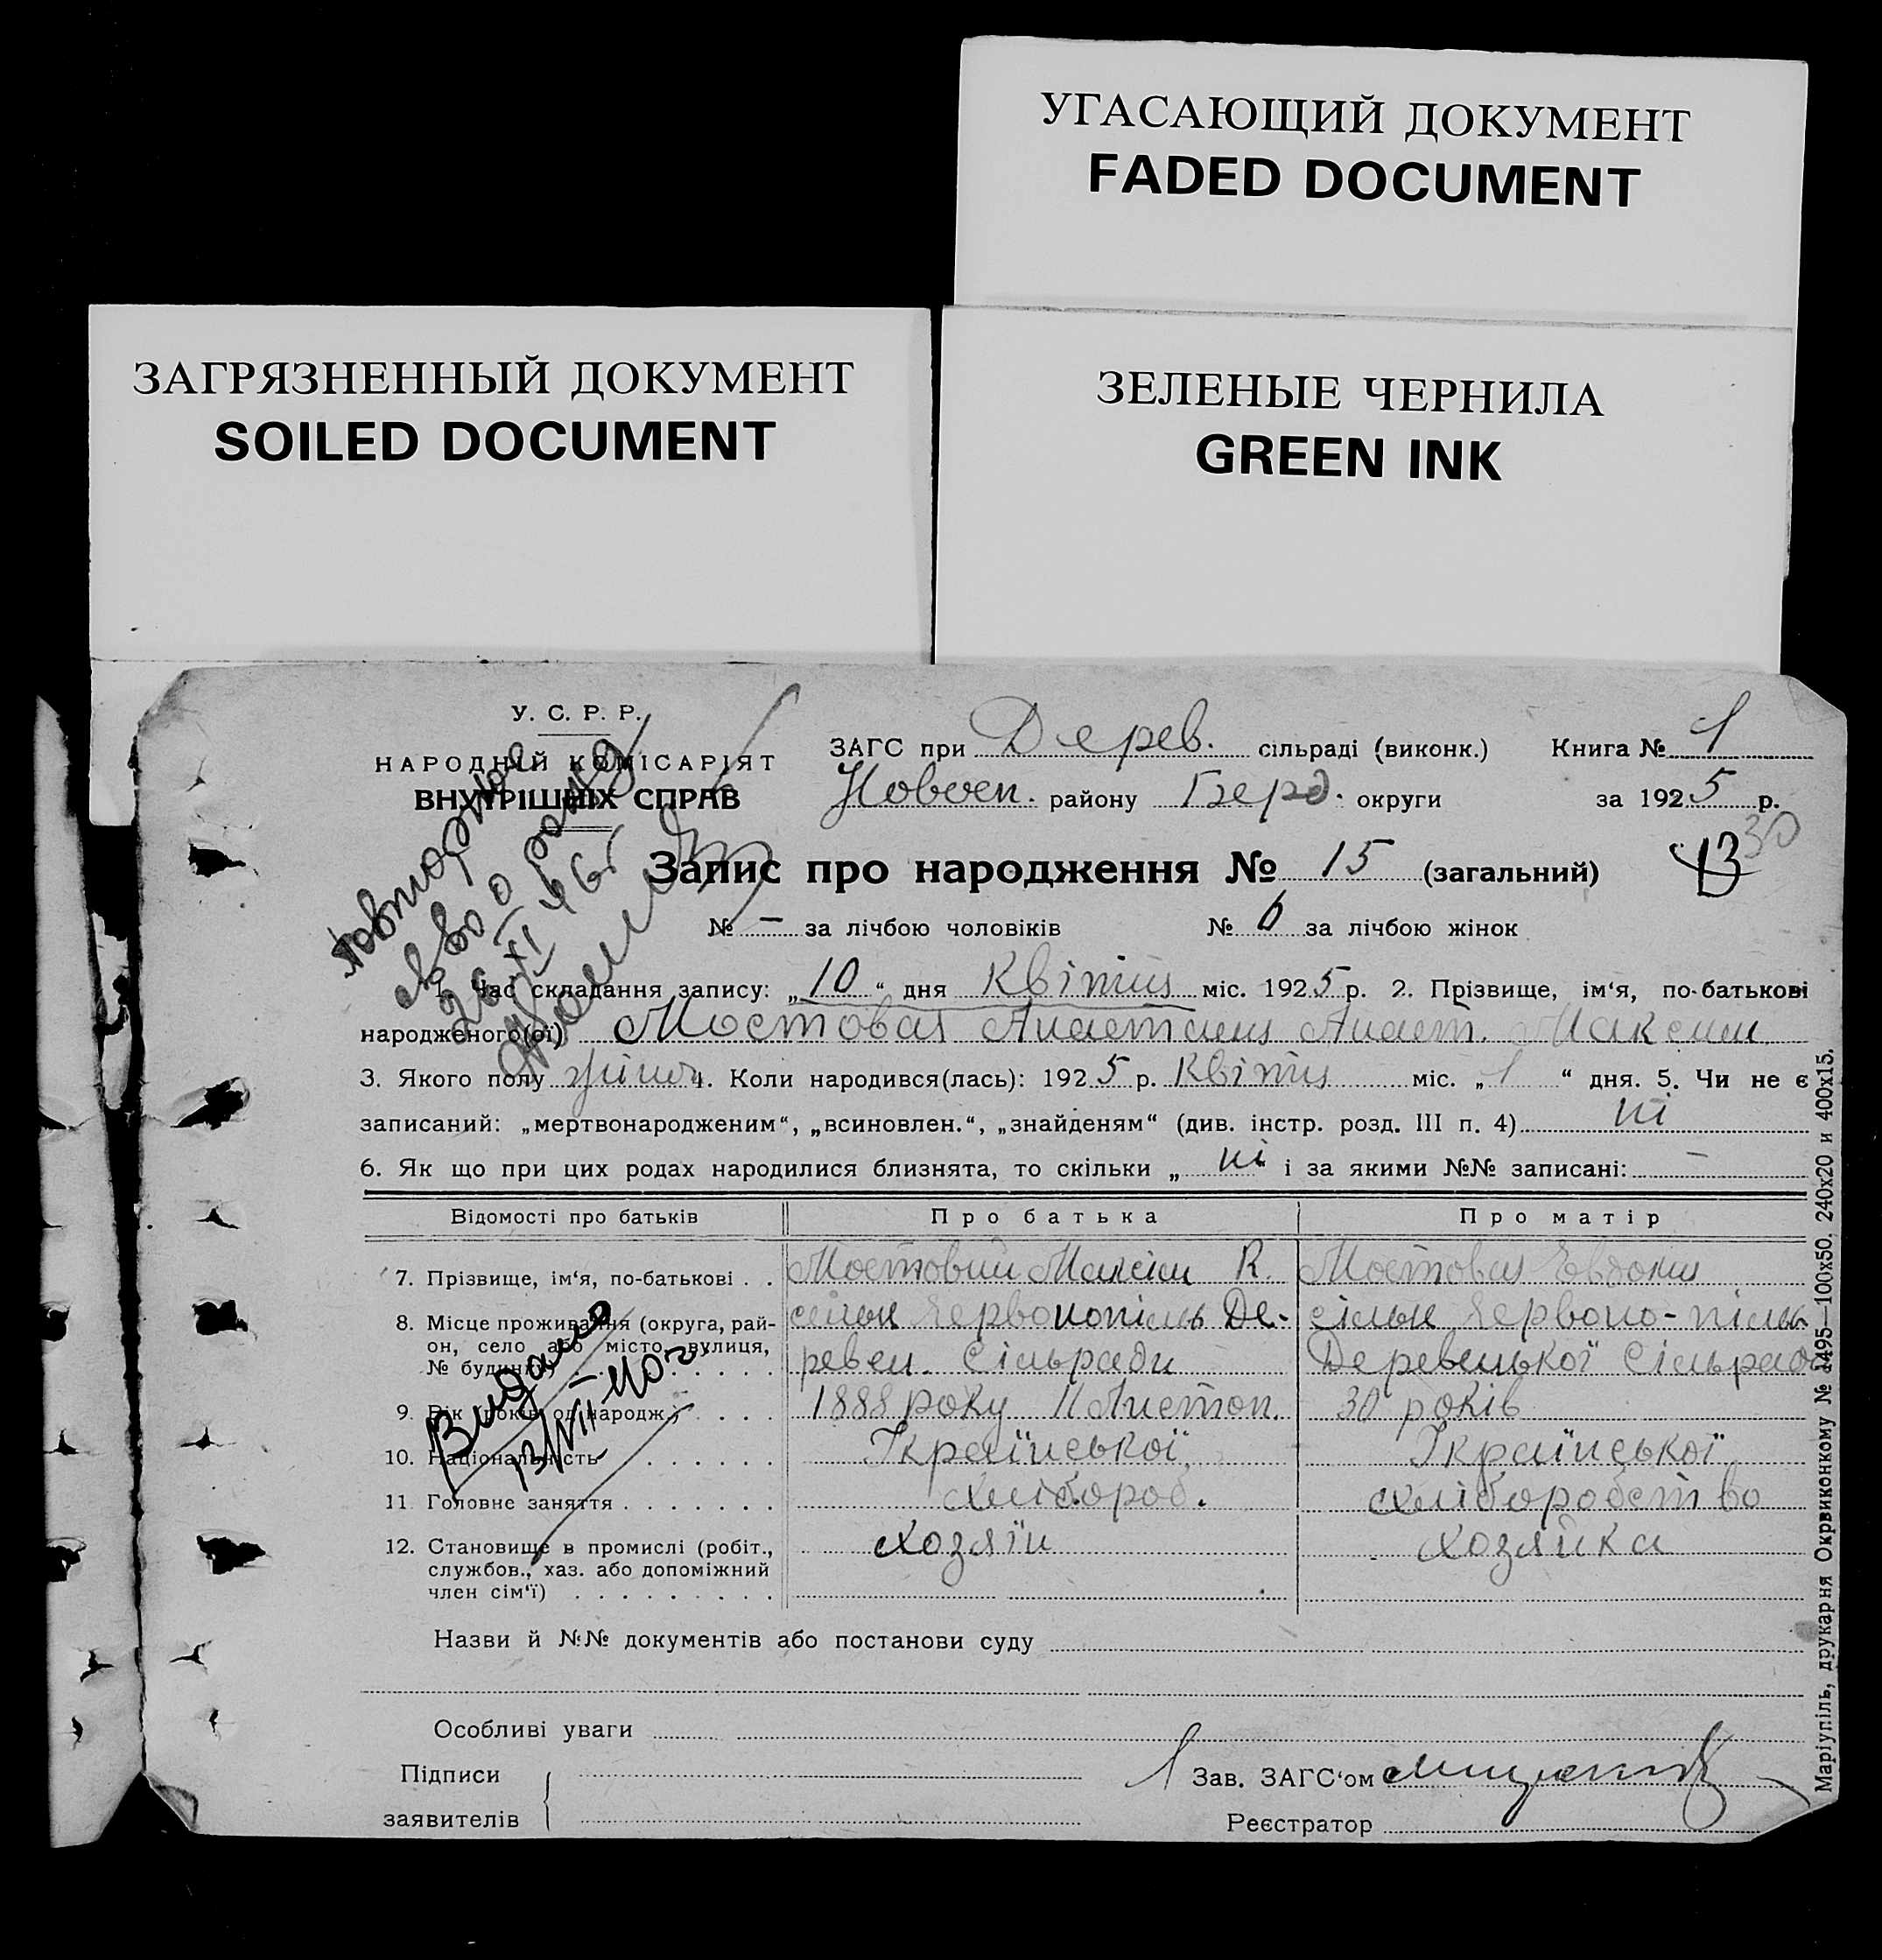 УГАСАЮЩИЙ ДОКУМЕНТ
FADED DOCUMENT
ЗАГРЯЗНЕННЫЙ ДОКУМЕНТ
SOILED DOCUMENT
ЗЕЛЕНЫЕ ЧЕРНИЛА
GREEN INK
У. С. Р. Р.
НАРОДНІЙ КОМІСАРІЯТ
ВНУТРІШНІХ СПРАВ
ЗАГС при Дерев. сільраді (виконк.) Книга № 1
Новосп. району Берд. округи за 1925 р.
30
13
Запис про народження № 15 (загальний)
№ — за лічбою чоловіків № 6 за лічбою жінок
Повторно
св во о рожд
26 XI 46 г
1. Час складання запису: „10“ дня Квітня міс. 1925 р. 2. Прізвище, ім‘я, по-батькові
народженого(ої) Мостовая Максим.
3. Якого полу жіноч. 4. Коли народився(лась): 1925 р. Квітня міс. „1“ дня. 5. Чи не є
записаний: „мертвонародженим“, „всиновлен.“, „знайденям“ (див. інстр. розд. III п. 4) ні
6. Як що при цих родах народилися близнята, то скільки „ні“ і за якими №№ записані: —
Відомості про батьків Про батька Про матір
7. Прізвище, ім‘я, по-батькові . . Мостовий Максим К. Мостовая Евдокия
8. Місце проживання (округа, рай-
он, село або місто, вулиця,
№ будинку) Червонопіль Де-
ревен. Сільради
Червоно-піль
Деревенької Сільради
9. Вік (років од народж.) . . . . 1888 року 11 Листоп. 30 років
10. Національність . . . . . . Української Української
11. Головне заняття . . . . . . . хлібороб. хліборобство
12. Становище в промислі (робіт.,
службов., хаз. або допоміжний
член сім‘ї) . . . . . . . . . хозяїн хозяйка
Видано
13/VII–40 г
Назви й №№ документів або постанови суду
Особливі уваги
Підписи
заявителів
Зав. ЗАГС‘ом
Реєстратор
Маріупіль, друкарня Окрвиконкому № 3495—100x50. 240x20 и 400x15.